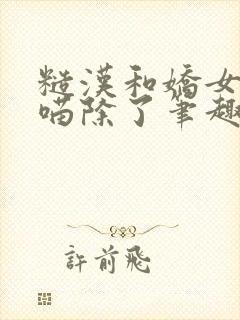 糙漢和嬌女
喵除了筆趣
許前飛